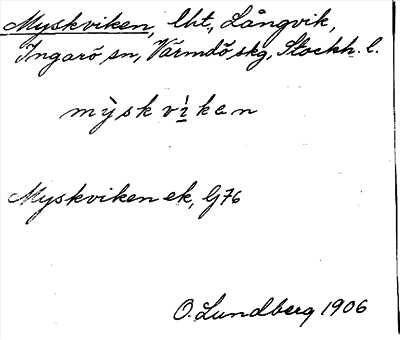 Myskviken, lht., Långvik,
Ingarö sn, Värmdö skg, Stockh. l.
mỳskvìkan
Myskviken ek, G76
O. Lundberg 1906